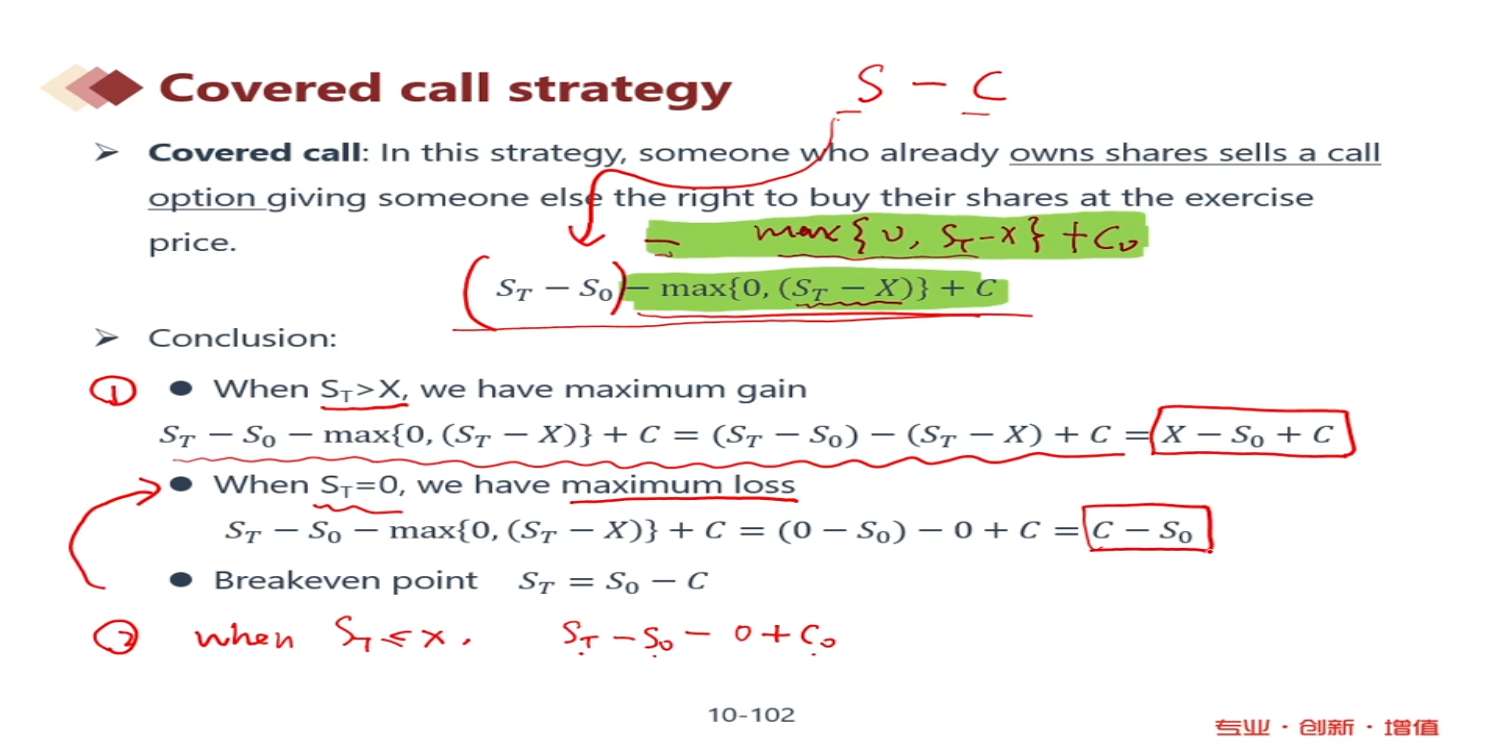 Covered call strategy S − C
➢ Covered call: In this strategy, someone who already owns shares sells a call
option giving someone else the right to buy their shares at the exercise
price.
− max{0, S_T − X} + C₀
(S_T − S₀) − max{0, (S_T − X)} + C
➢ Conclusion:
① ● When S_T>X, we have maximum gain
S_T − S₀ − max{0, (S_T − X)} + C = (S_T − S₀) − (S_T − X) + C = X − S₀ + C
● When S_T=0, we have maximum loss
S_T − S₀ − max{0, (S_T − X)} + C = (0 − S₀) − 0 + C = C − S₀
● Breakeven point S_T = S₀ − C
② when S_T ≤ X, S_T − S₀ − 0 + C₀
10-102
专业 · 创新 · 增值